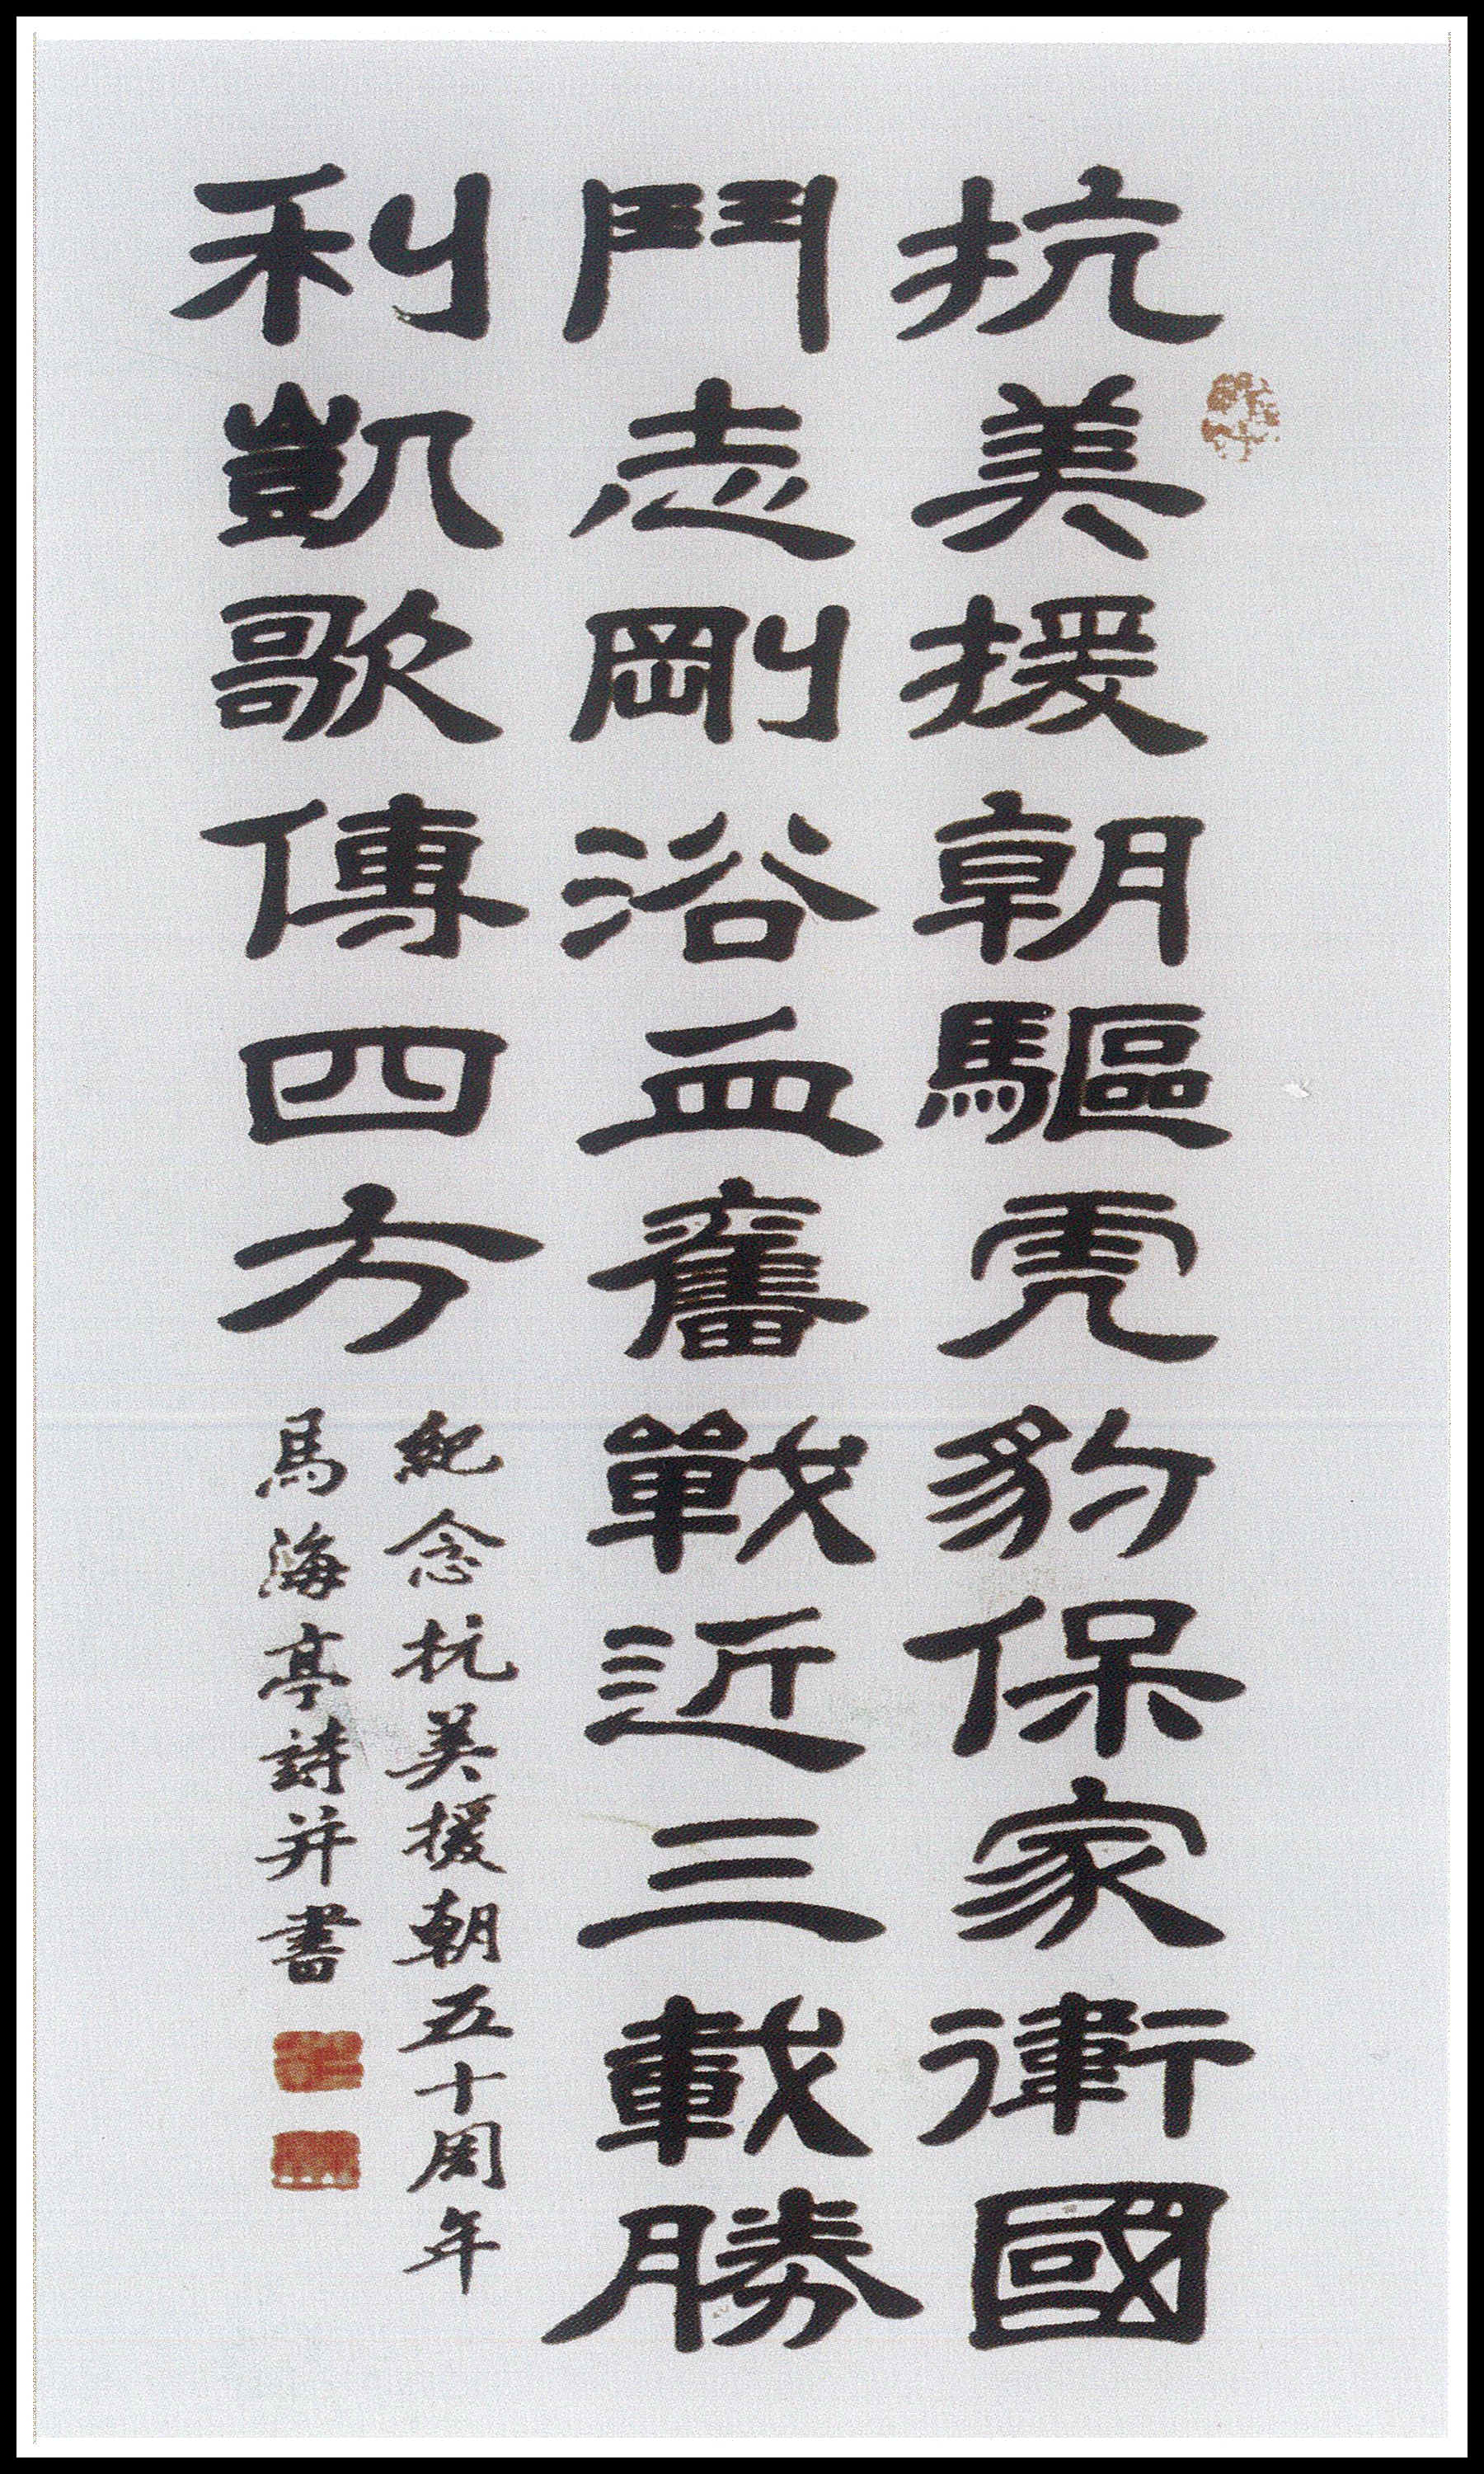 抗美援朝驅虎豹保家衛國
鬥志剛浴血奮戰近三載勝
利凱歌傳四方
紀念抗美援朝五十周年
馬海亭詩并書